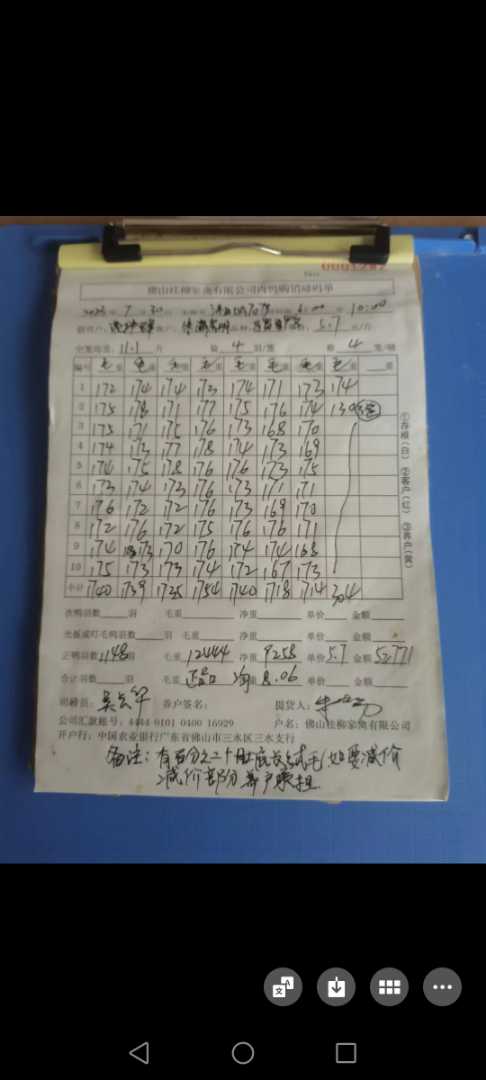 佛山桂柳家禽有限公司肉鸭购销动码单
7 30 10:00
5.7 元/斤
空笼均重: 11.1 斤 装 4 羽/笼 称 4 笼/磅
编号 毛重 毛重 毛重 毛重 毛重 毛重 毛重 毛重 重
1 172 174 174 173 174 171 173 174
2 175 178 171 177 175 176 174 130
3 175 171 175 176 173 168 170
4 174 173 177 178 174 173 169
5 174 175 178 176 176 173 175
6 173 174 173 176 173 171 171
7 176 172 172 176 173 169 170
8 172 176 172 175 176 176 171
9 174 173 170 176 174 174 168
10 175 173 173 174 172 167 173
小计 1740 1739 1735 1754 1740 1718 1714 304
①存根(白) ②客户(红) ③养户(黄)
次鸭羽数 羽 毛重 净重 单价 金额
光板或叮毛鸭羽数 羽 毛重 净重 单价 金额
正鸭羽数 1148 羽 毛重 12444 净重 9258 单价 5.7 金额 52771
合计羽数 羽 毛重 均重 8.06 单价 金额
司磅员: 养户签名: 提货人:
公司汇款账号: 4404 0101 0400 16929 户名: 佛山桂柳家禽有限公司
开户行: 中国农业银行广东省佛山市三水区三水支行
备注: 有百分之二十肚底长绒毛(如要减价
减价部分养户承担